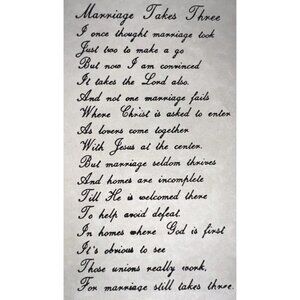 Marriage Takes Three
I once thought marriage took
Just two to make a go
But now I am convinced
It takes the Lord also.
And not one marriage fails
Where Christ is asked to enter
As lovers come together
With Jesus at the center.
But marriage seldom thrives
And homes are incomplete
Till He is welcomed there
To help avoid defeat.
In homes where God is first
It's obvious to see
Those unions really work,
For marriage still takes three.